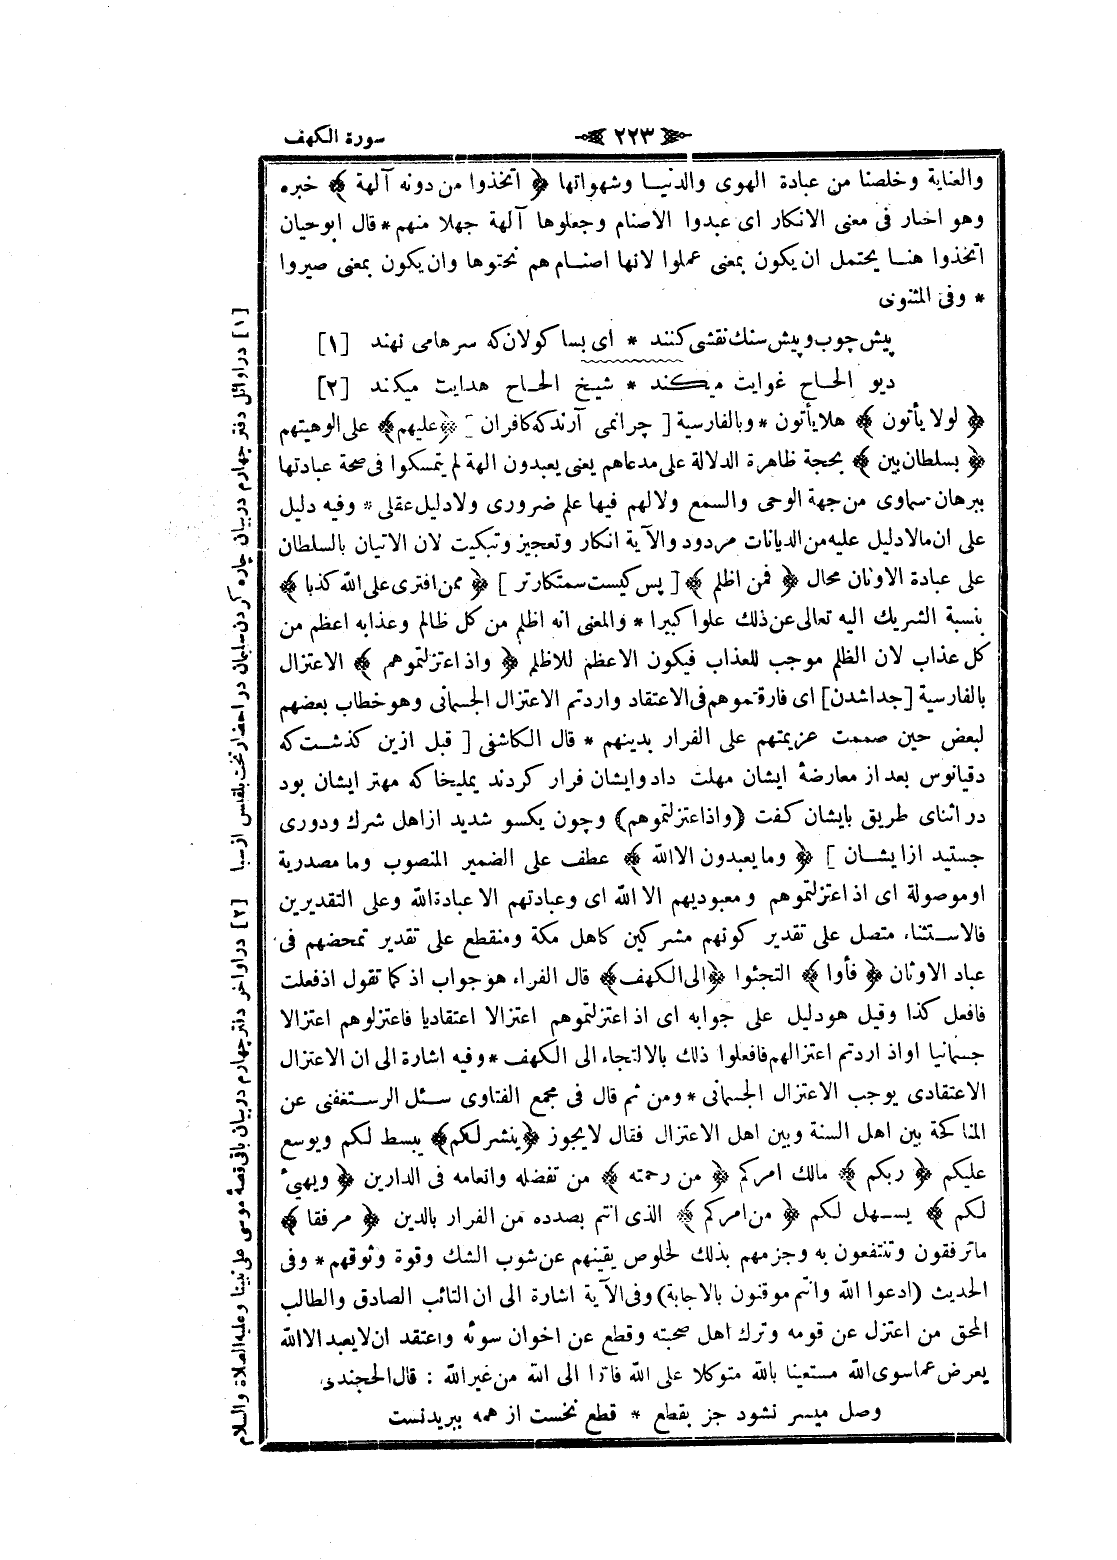 سورة الكهف
﴿ ٢٢٣ ﴾
والعناية وخلصنا من عبادة الهوى والدنيا وشهواتها ﴿ اتخذوا من دونه آلهة ﴾ خبره
وهو اخبار فى معنى الانكار اى عبدوا الاصنام وجعلوها آلهة جهلا منهم * قال ابوحيان
اتخذوا هنا يحتمل ان يكون بمعنى عملوا لانها اصنام هم نحتوها وان يكون بمعنى صيروا
* وفى المثنوى
پيش چوب وپيش سنك نقشى كنند * اى بسا كولان كه سرهامى نهند [١]
ديو الحاح غوايت ميكند * شيخ الحاح هدايت ميكند [٢]
﴿ لولا يأتون ﴾ هلا يأتون * وبالفارسية [ چرانمى آرندكه كافران ] ﴿عليهم﴾ على الوهيتهم
﴿ بسلطان بين ﴾ بحجة ظاهرة الدلالة على مدعاهم يعنى يعبدون آلهة لم يتمسكوا فى صحة عبادتها
ببرهان سماوى من جهة الوحى والسمع ولالهم فيها علم ضرورى ولا دليل عقلى * وفيه دليل
على ان مالا دليل عليه من الديانات مردود والآية انكار وتعجيز وتبكيت لان الاتيان بالسلطان
على عبادة الاوثان محال ﴿ فمن اظلم ﴾ [ پس كيست ستمكارتر ] ﴿ ممن افترى على الله كذبا ﴾
بنسبة الشريك اليه تعالى عن ذلك علوا كبيرا * والمعنى انه اظلم من كل ظالم وعذابه اعظم من
كل عذاب لان الظلم موجب للعذاب فيكون الاعظم للاظلم ﴿ واذ اعتزلتموهم ﴾ الاعتزال
بالفارسية [جداشدن] اى فارقتموهم فى الاعتقاد واردتم الاعتزال الجسمانى وهو خطاب بعضهم
لبعض حين صممت عزيمتهم على الفرار بدينهم * قال الكاشفى [ قبل ازين كذشت كه
دقيانوس بعد از معارضهٔ ايشان مهلت داد وايشان فرار كردند يمليخا كه مهتر ايشان بود
در اثناى طريق بايشان كفت (واذاعتزلتموهم) وچون يكسو شديد ازاهل شرك ودورى
جستيد ازايشان ] ﴿ وما يعبدون الاالله ﴾ عطف على الضمير المنصوب وما مصدرية
اوموصولة اى اذ اعتزلتموهم ومعبوديهم الا الله اى وعبادتهم الا عبادةالله وعلى التقديرين
فالاستثناء متصل على تقدير كونهم مشركين كاهل مكة ومنقطع على تقدير تمحضهم فى
عباد الاوثان ﴿ فأوا ﴾ التجئوا ﴿الى الكهف﴾ قال الفراء هو جواب اذ كما تقول اذ فعلت
فافعل كذا وقيل هودليل على جوابه اى اذ اعتزلتموهم اعتزالا اعتقاديا فاعتزلوهم اعتزالا
جسمانيا اواذ اردتم اعتزالهم فافعلوا ذلك بالالتجاء الى الكهف * وفيه اشارة الى ان الاعتزال
الاعتقادى يوجب الاعتزال الجسمانى * ومن ثم قال فى مجمع الفتاوى سئل الرستغفنى عن
المناكحة بين اهل السنة وبين اهل الاعتزال فقال لايجوز ﴿ينشر لكم﴾ يبسط لكم ويوسع
عليكم ﴿ ربكم ﴾ مالك امركم ﴿ من رحمته ﴾ من تفضله وانعامه فى الدارين ﴿ ويهيئ
لكم ﴾ يسهل لكم ﴿ من امركم ﴾ الذى انتم بصدده من الفرار بالدين ﴿ مرفقا ﴾
ماترفقون وتنتفعون به وجزمهم بذلك لخلوص يقينهم عن شوب الشك وقوة وثوقهم * وفى
الحديث (ادعوا الله وانتم موقنون بالاجابة) وفى الآية اشارة الى ان التائب الصادق والطالب
المحق من اعتزل عن قومه وترك اهل صحبته وقطع عن اخوان سوئه واعتقد ان لايعبد الاالله
يعرض عماسوى الله مستعينا بالله متوكلا على الله فارا الى الله من غيرالله : قال الخجندى
وصل ميسر نشود جز بقطع * قطع نخست از همه ببريدنست
[١] دراوائل دفتر چهارم دربيان چاره كردن سليمان در احضار تخت بلقيس از سبا
[٢] دراواخر دفتر چهارم دربيان باقى قصهٔ موسى على نبينا وعليه الصلاة والسلام